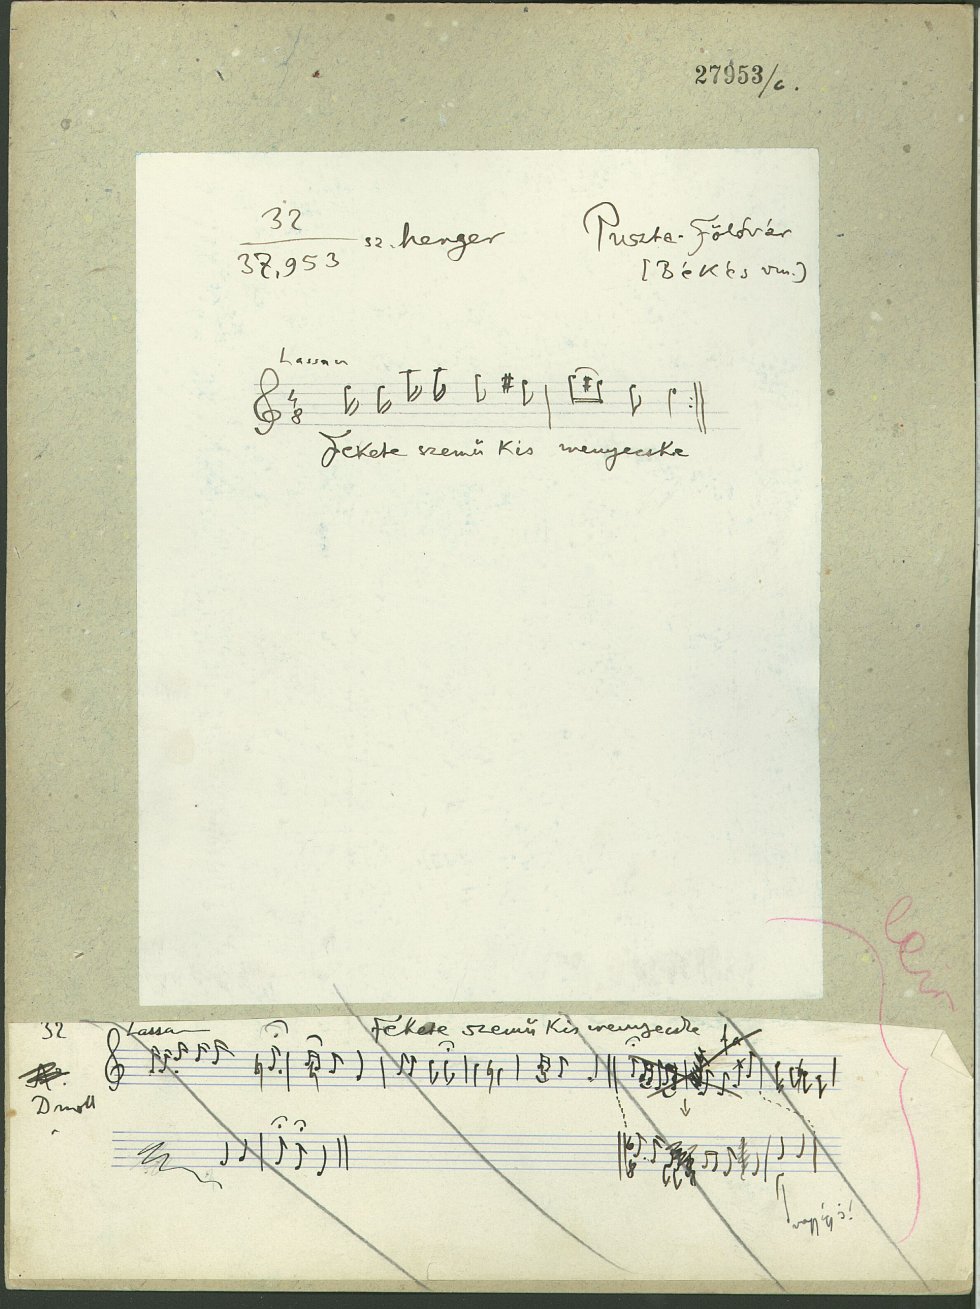 27953/c.
32
37,953 sz. henger
Puszta-Földvár
[Békés vm.]
Lassan
4
8
Fekete szemű kis menyecske
32
Lassan
Fekete szemű kis menyecske
D moll
6
8